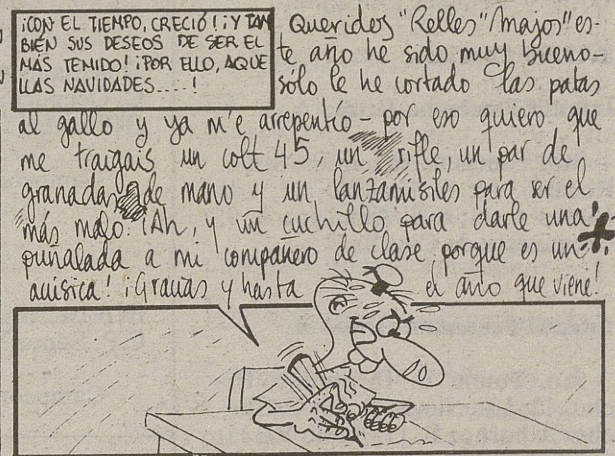 ¡CON EL TIEMPO, CRECIÓ! ¡Y TAM
BIÉN SUS DESEOS DE SER EL
MÁS TEMIDO! ¡POR ELLO, AQUE
LLAS NAVIDADES....!
Queridos "Relles" Majos" es-
te año he sido muy bueno-
sólo le he cortado las patas
al gallo y ya m'e arrepentío - por eso quiero que
me traigais un colt 45, un rifle, un par de
granadas de mano y un lanzamisiles para ser el
más malo. ¡Ah, y un cuchillo para darle una
puñalada a mi compañero de clase porque es un
auisica! ¡Gracias y hasta el año que viene!